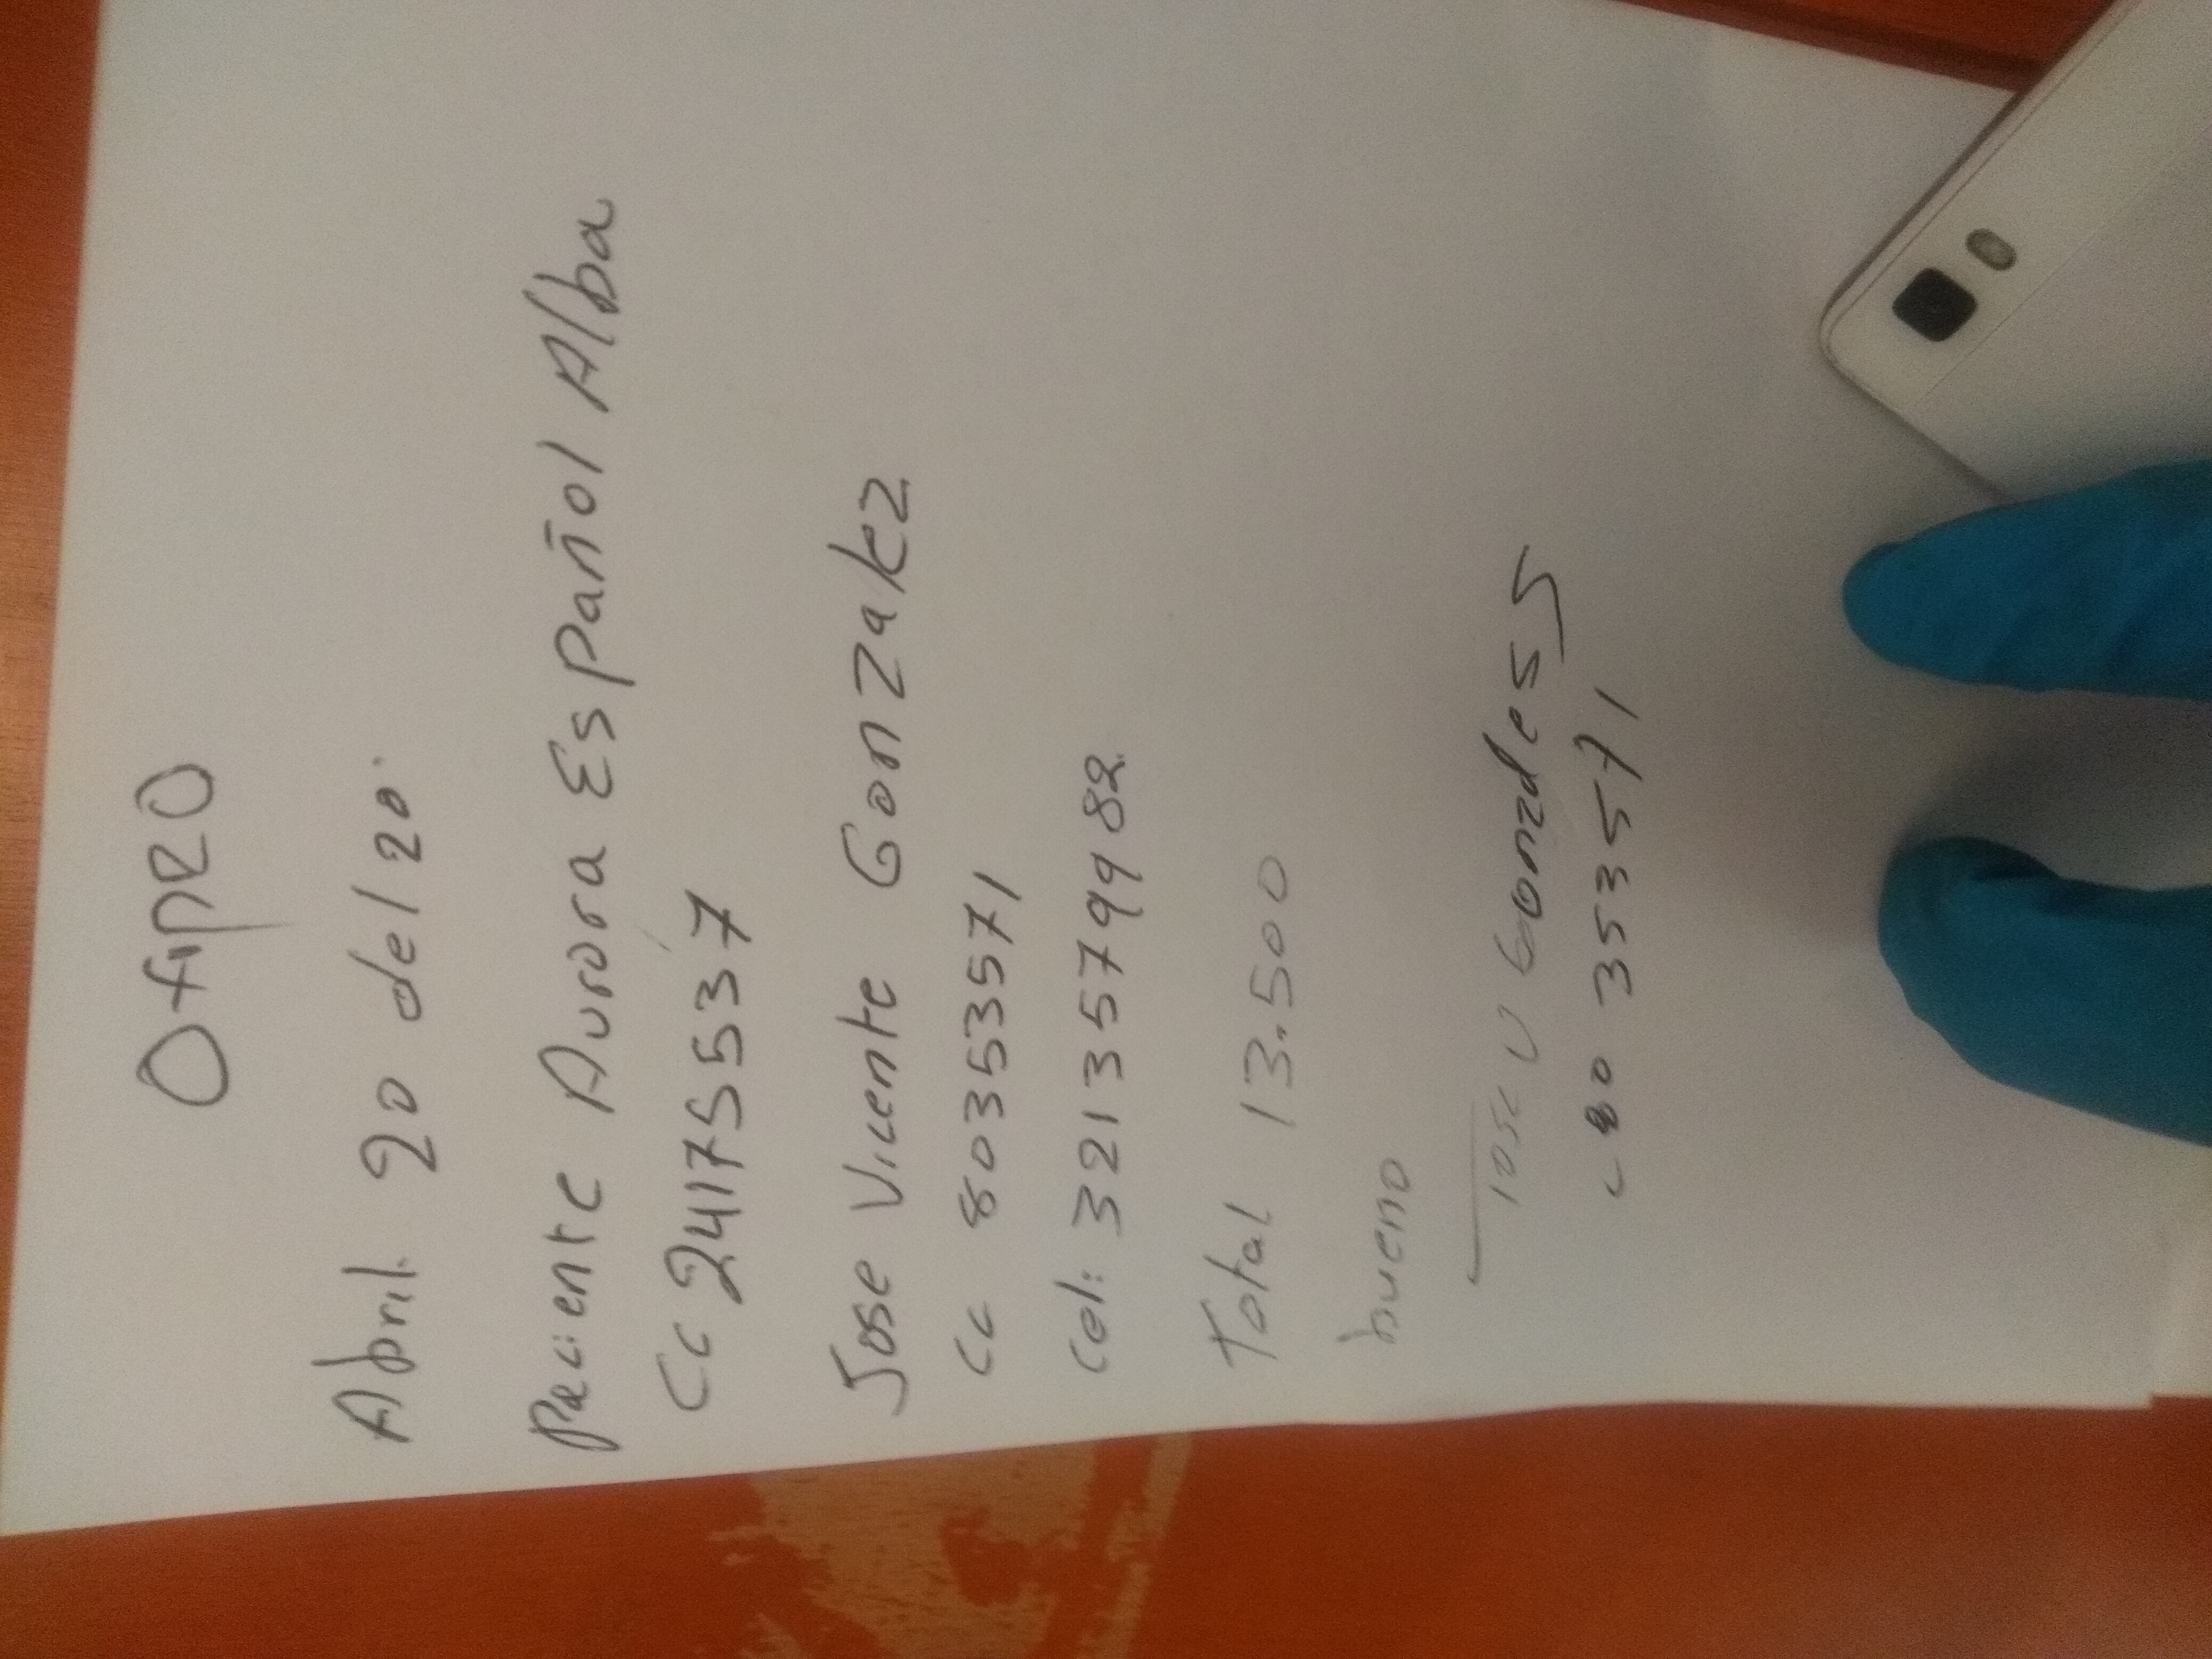 Ofipro
Abril 20 del 20.
Paciente Aurora Español Alba
Cc 24175537
Jose Vicente Gonzalez
Cc 80353571
Cel: 3213579982
Total 13.500
bueno
Jose V Gonzales
C 80 353571